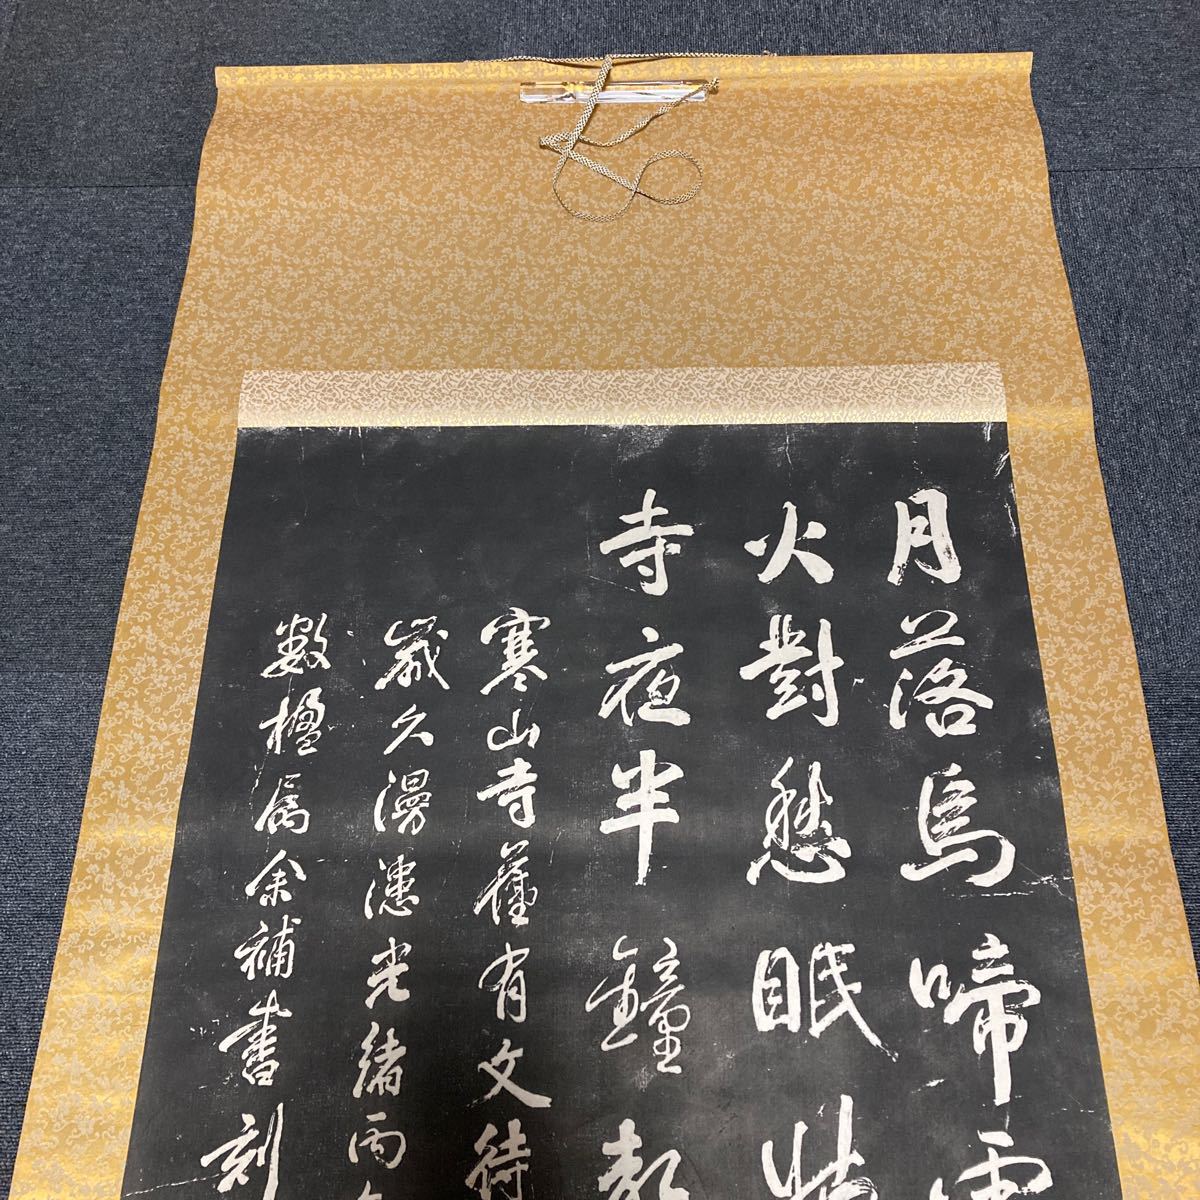 月落烏啼
火對愁眠
寺夜半鐘
寒山寺舊有文待
歲久漫漶光緒丙
數楹属余補書刻